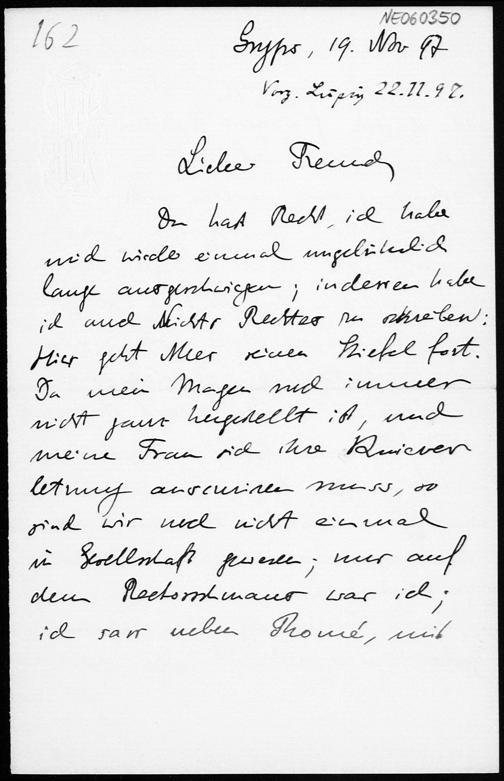 162
NE060350
Gryps, 19. Nov 97
Vorz. Leipzig 22.11.97.
Lieber Freund,
Du hast Recht, ich habe
mich wieder einmal ungebührlich
lange ausgeschwiegen; indessen habe
ich auch Nichts Rechtes zu schreiben:
Hier geht Alles seinen Stiefel fort.
Da mein Magen noch immer
nicht ganz hergestellt ist, und
meine Frau sich ihre Kniever
letzung auscuriren muss, so
sind wir noch nicht einmal
in Gesellschaft gewesen; nur auf
dem Rectorschmaus war ich;
ich sass neben Thomé, mit